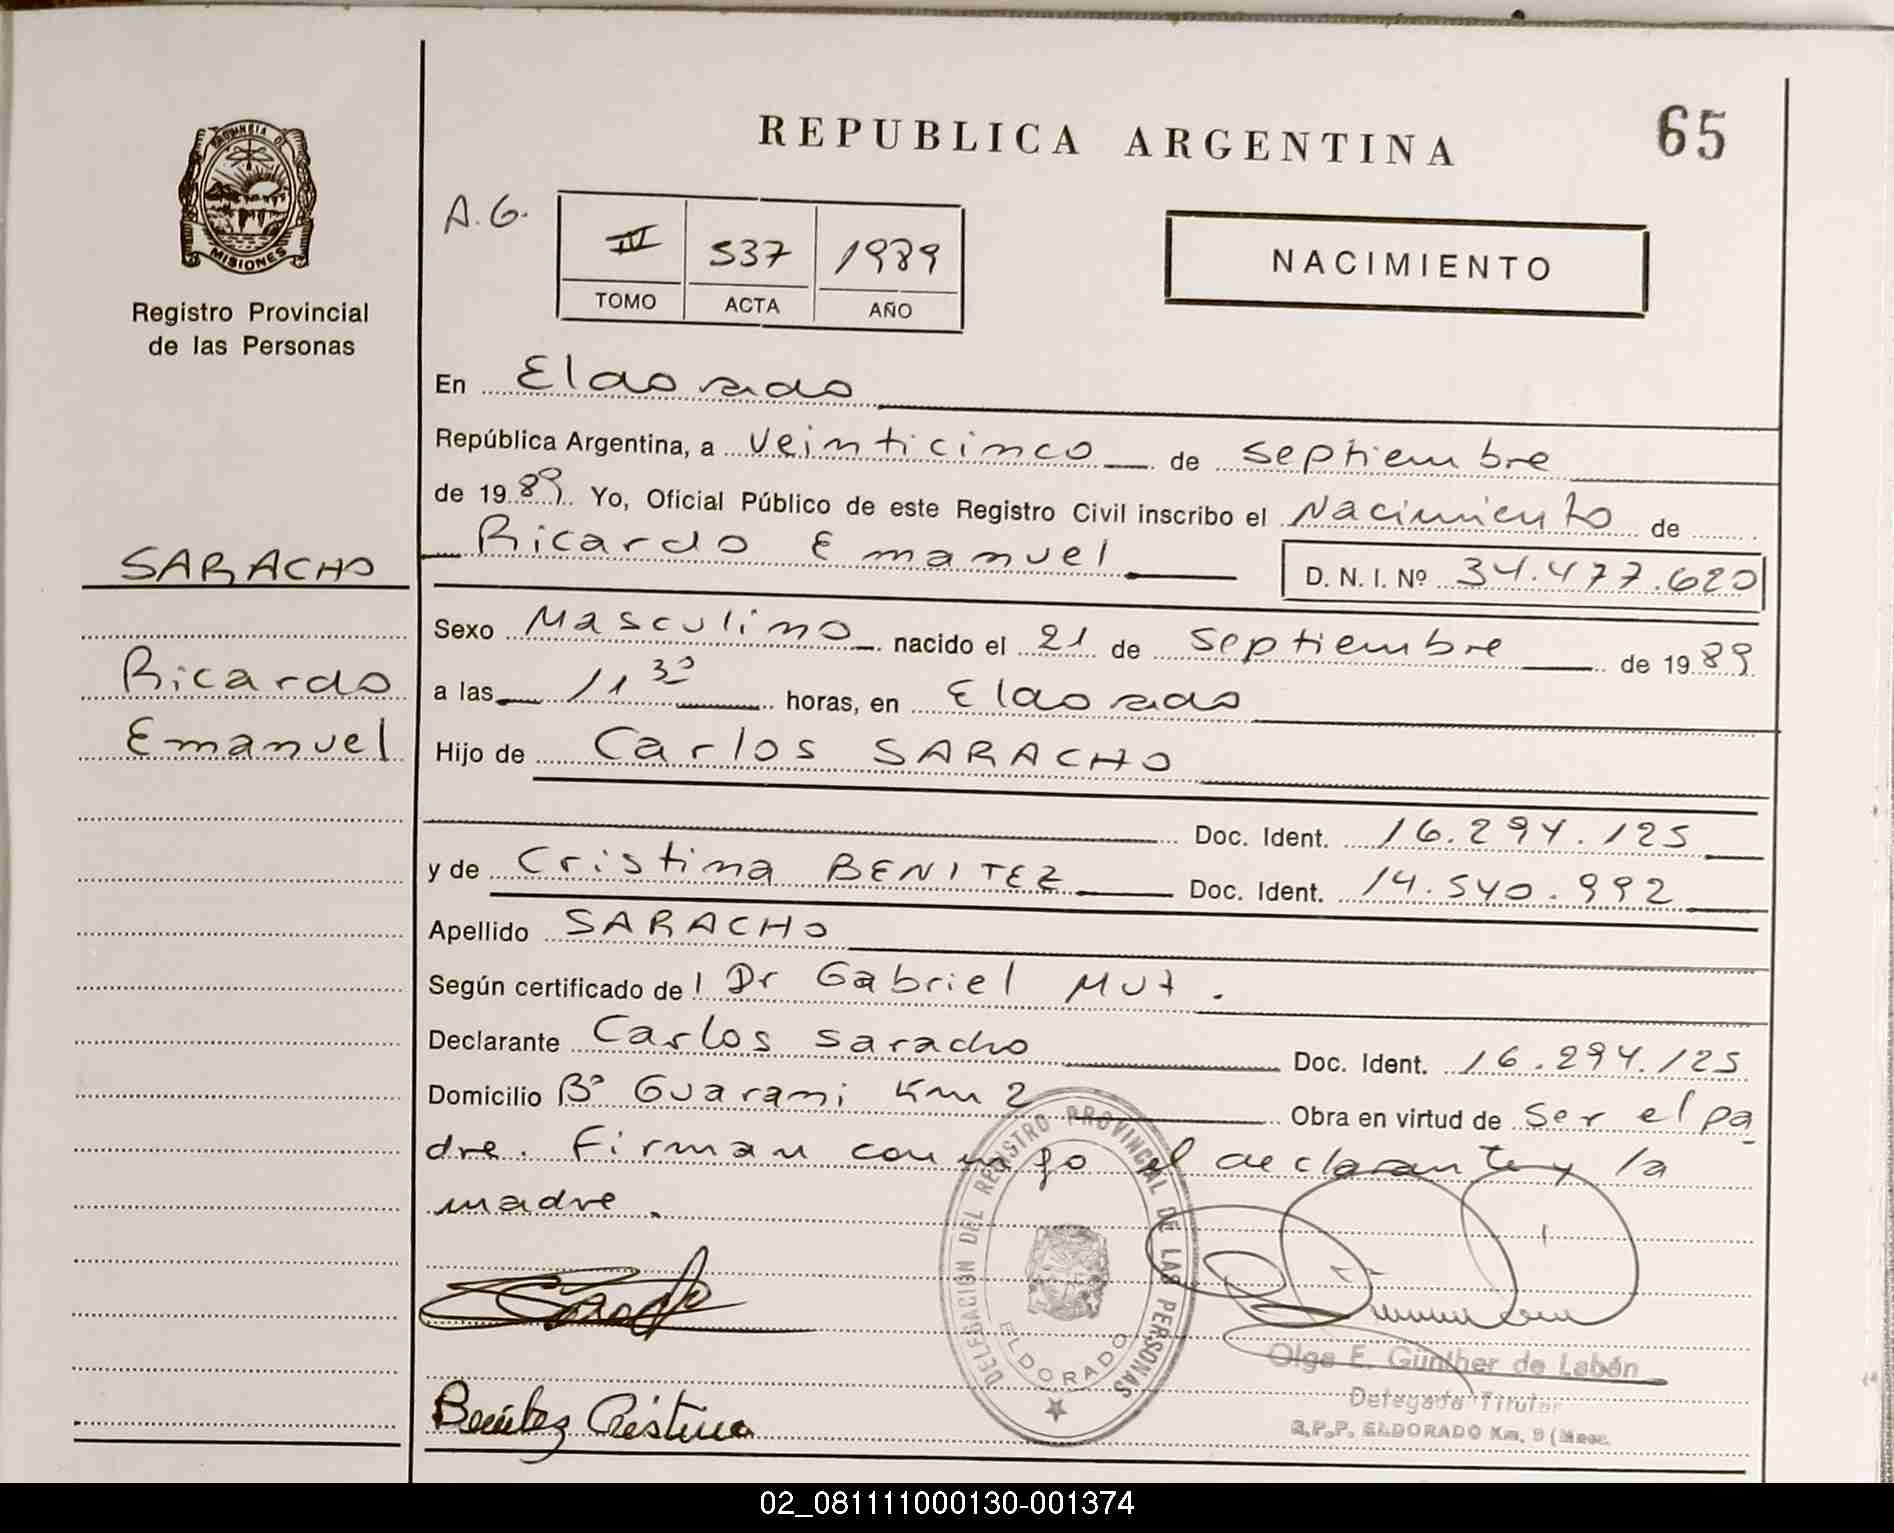 REPUBLICA ARGENTINA
65
PROVINCIA DE
MISIONES
Registro Provincial
de las Personas
A.G.
IV 537 1989
TOMO ACTA AÑO
NACIMIENTO
En Eldorado
República Argentina, a veinticinco de septiembre
de 1989. Yo, Oficial Público de este Registro Civil inscribo el Nacimiento de
Ricardo Emanuel D. N. I. Nº 34.477.620
SARACHO
Ricardo
Emanuel
Sexo Masculino nacido el 21 de septiembre de 1989
a las 11 30 horas, en Eldorado
Hijo de Carlos SARACHO
Doc. Ident. 16.294.125
y de Cristina BENITEZ Doc. Ident. 14.540.992
Apellido SARACHO
Según certificado de l Dr Gabriel
Declarante Carlos Saracho Doc. Ident. 16.294.125
Domicilio Bº Guarani Km 2 Obra en virtud de ser el pa
dre. Firman conmigo el declarante y la
madre.
DELEGACION DEL REGISTRO PROVINCIAL DE LAS PERSONAS
ELDORADO
Benitez Cristina
Olga E. Günther de Labán
Delegada Titular
R.P.P. ELDORADO Km. 9
02_081111000130-001374